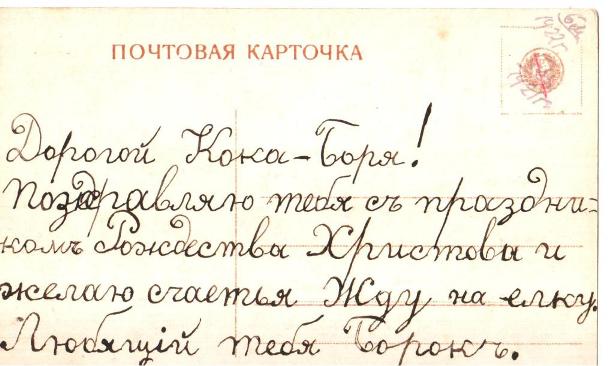 ПОЧТОВАЯ КАРТОЧКА
1922 г.
1921 г.
Дорогой Кока-Боря!
Поздравляю тебя съ праздни-
комъ Рождества Христова и
желаю счастья Жду на елку.
Любящій тебя Борокъ.